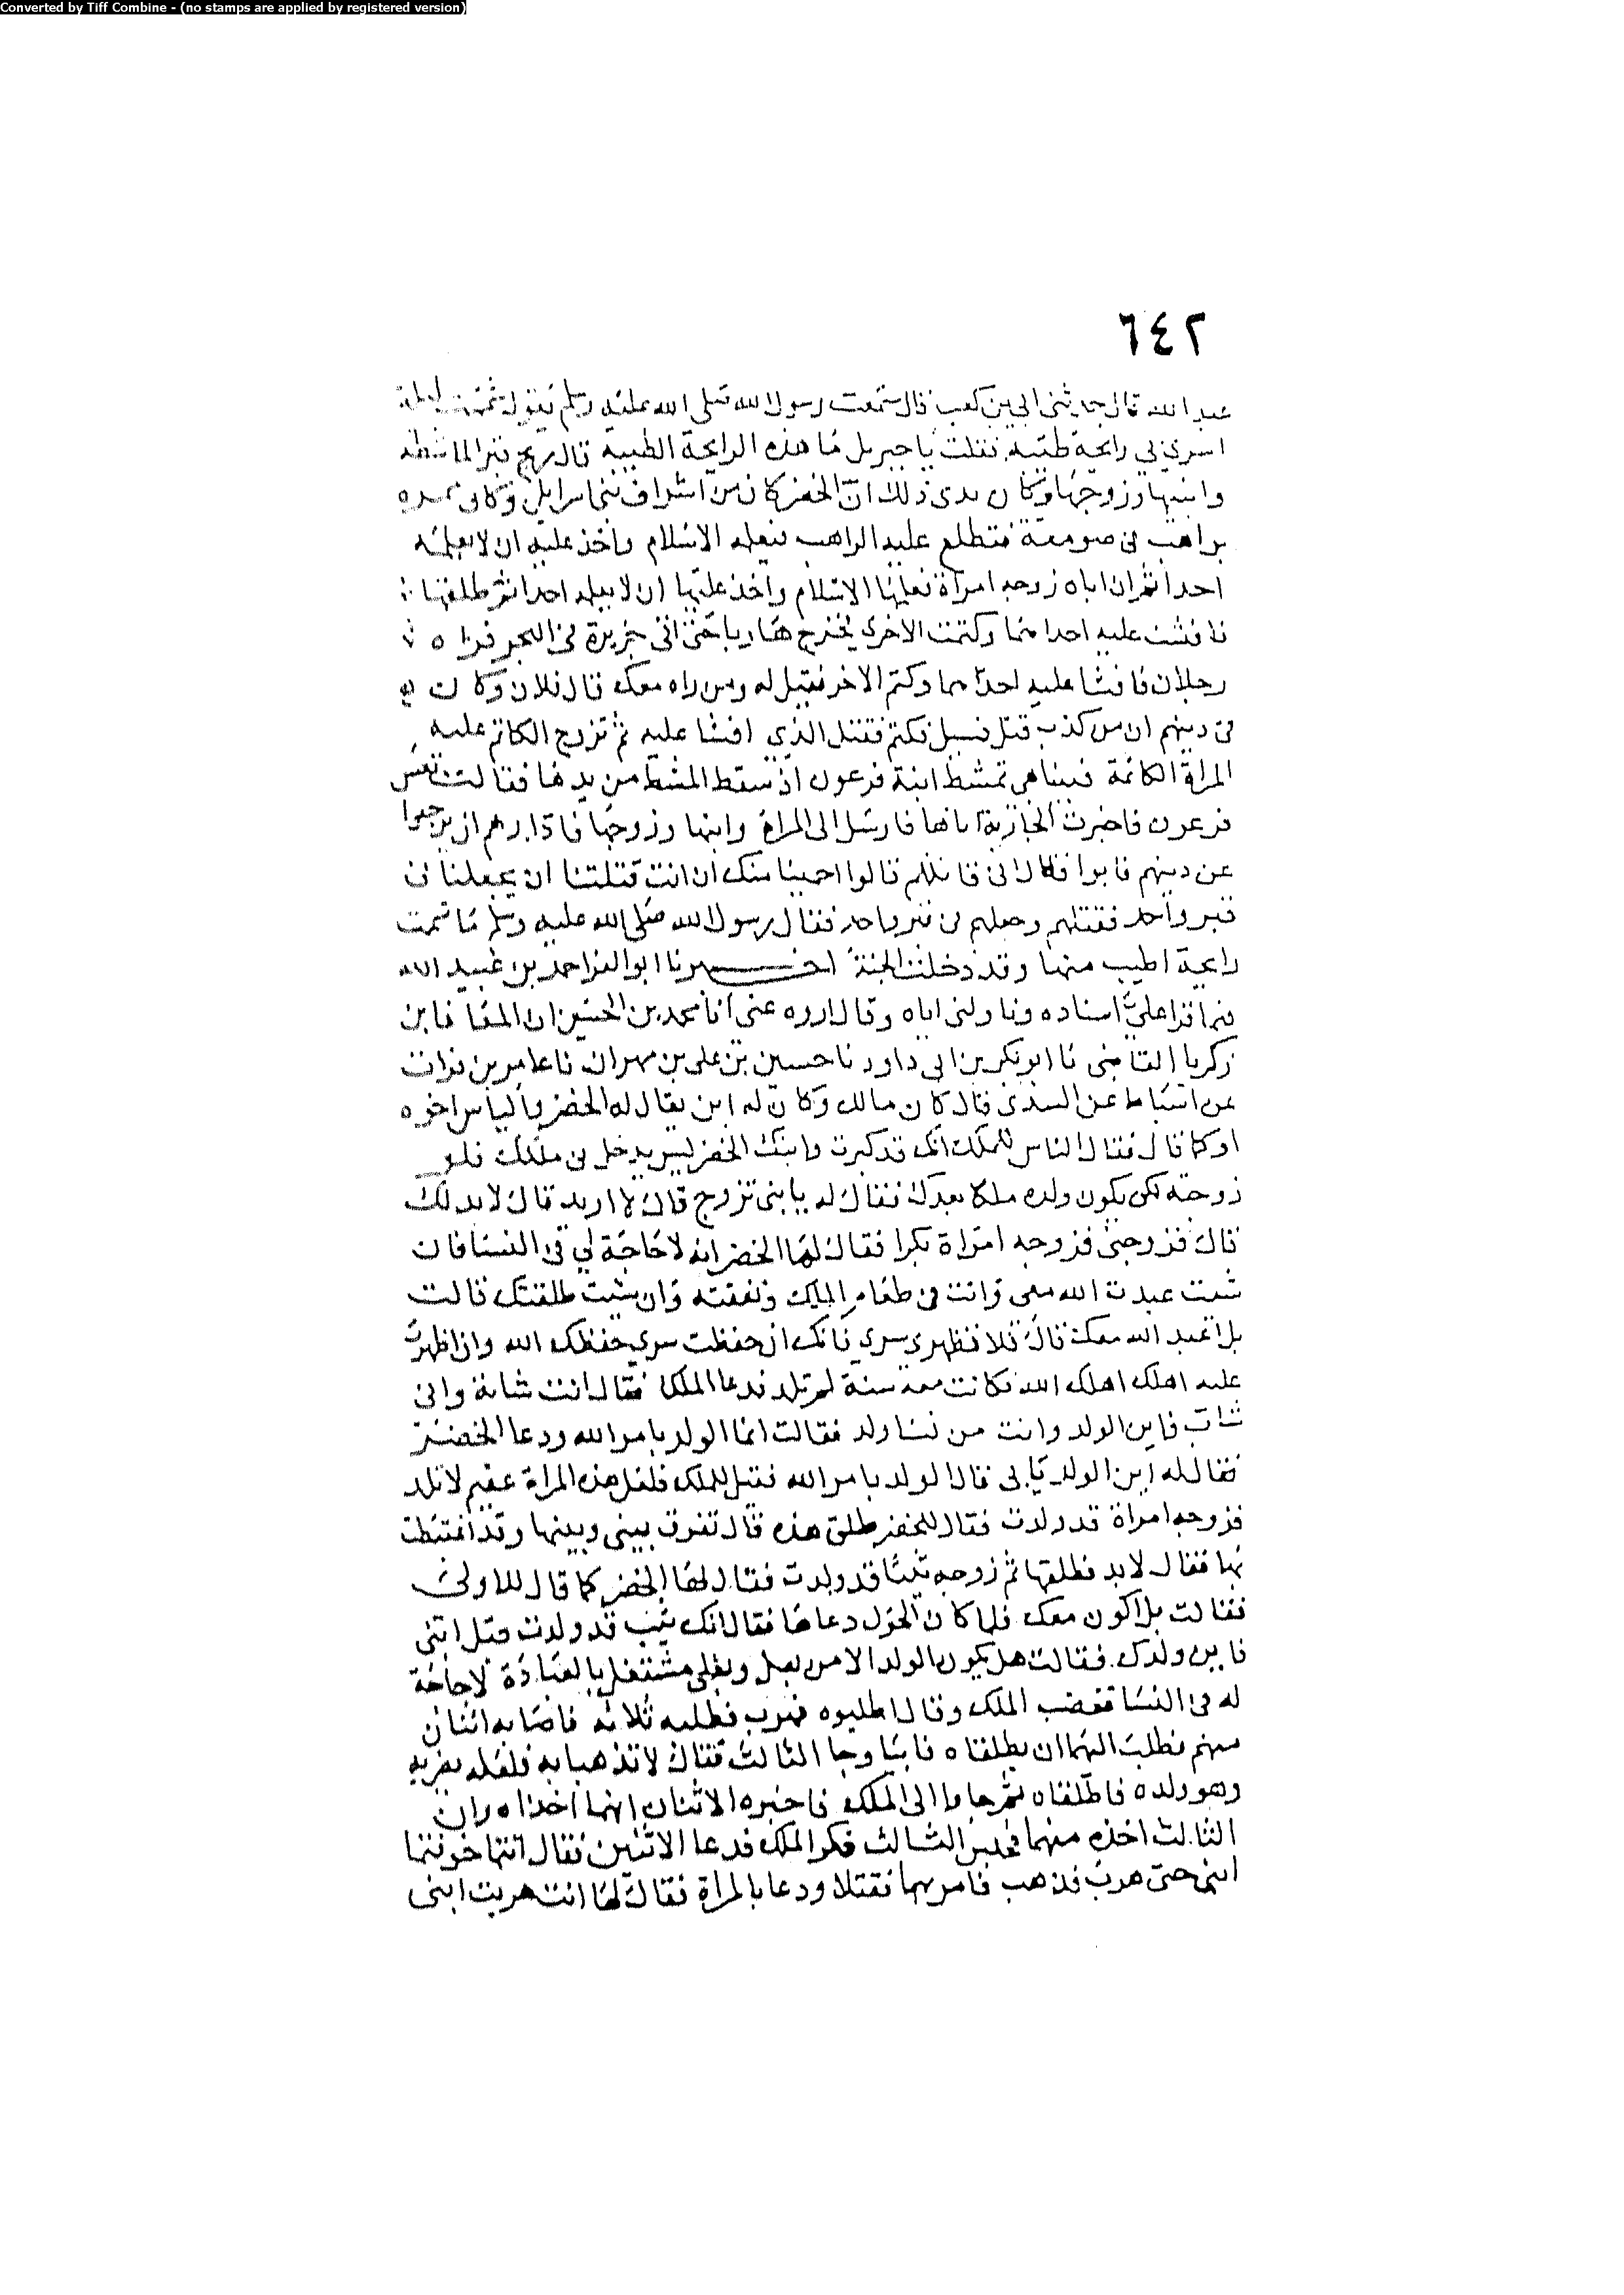 Converted by Tiff Combine - (no stamps are applied by registered version)
٦٤٢
عبد الله قال حدثنى ابي بن كعب قال سمعت رسول الله صلى الله عليه وسلم يقول شممت ليلة
اسري بي رايحة طيبة فقلت يا جبريل ما هذه الرايحة الطيبة قال ريح قبر الماشطة
وابنيها وزوجها وكان بدى ذلك ان الخضر كان من اشراف بنى اسرايل وكان ممره
براهب فى صومعة فتطلع عليه الراهب فعلمه الاسلام واخذ عليه ان لا يعلمه
احدا ثم ان اباه زوجه امراة فعلمها الاسلام واخذ عليها ان لا يعلمه احدا ثم طلقها
فافشت عليه احداهما وكتمت الاخرى فخرج هاربا حتى اتى جزيرة فى البحر فراه
رجلان فافشا عليه احدهما وكتم الاخر فقيل له ومن راه معك قال فلان وكان
فى دينهم ان من كذب قتل فسيل فكتم فقتل الذي افشا عليه ثم تزوج الكاتم عليه
المراة الكاتمة فبينا هى تمشط ابنة فرعون اذ سقط المشط من يدها فقالت تعس
فرعون فاخبرت الجارية اباها فارسل الى المراة وابنها وزوجها فارادهم ان يرجعوا
عن دينهم فابوا فقال انى قاتلهم قالوا احببنا منك ان انت قتلتنا ان يجعلنا فى
قبر واحد فقتلهم وجعلهم فى قبر واحد فقال رسول الله صلى الله عليه وسلم ما شممت
رايحة اطيب منها وقد دخلت الجنة اخبرنا ابو العز احمد بن عبيد الله
فيما قرا علي اسناده وناولنى اياه وقال اروه عنى انا محمد بن الحسين انا المعافا بن
زكريا القاضى نا ابو بكر بن ابى داود نا حسين بن على بن مهران نا عامر بن فرات
عن اسباط عن السدى قال كان مالك وكان له ابن يقال له الخضر والياس اخوه
او كما قال فقال الناس للملك انك قد كبرت وابنك الخضر ليس يدخل فى ملكك فلو
زوجته لكى يكون ولده ملكا بعدك فقال له يا بنى تزوج قال لا اريد قال لا بد لك
قال فزوجنى فزوجه امراة بكرا فقال لها الخضر انه لا حاجة لي فى النسا فان
شئت عبدت الله معى وانت فى طعام الملك ونفقته وان شئت طلقتك قالت
بل اعبد الله معك قال فلا تظهرى سري فانك ان حفظت سري حفظك الله وان اظهرت
عليه اهلك اهلك الله فكانت معه سنة لم تلد فدعا الملك فقال انت شابة وابنى
شاب فاين الولد وانت من نسا ولد فقالت انما الولد بامر الله ودعا الخضر
فقال له اين الولد يا بنى قال الولد بامر الله فقيل للملك فلعل هذه المراة عقيم لا تلد
فزوجه امراة قد ولدت فقال للخضر طلق هذه قال تفرق بينى وبينها وقد اغتبطت
بها فقال لا بد فطلقها ثم زوجه ثيبا قد ولدت فقال لها الخضر كما قال للاولى
فقالت بل اكون معك فلما كان الحول دعاها فقال انك ثيب قد ولدت قبل ابنى
فاين ولدك فقالت هل يكون الولد الا من بعل وبعلى مشتغل بالعبادة لا حاجة
له فى النسا فغضب الملك وقال اطلبوه فهرب فطلبه ثلاثة فاصابه اثنان
منهم فطلب اليهما ان يطلقاه فابيا وجا الثالث فقال لا تذهبا به فلعله يضربه
وهو ولده فاطلقاه ثم جاوا الى الملك فاخبره الاثنان انهما اخذاه وان
الثالث اخذه منهما فحبس الثالث فكر الملك فدعا الاثنين فقال انتما خوفتما
ابنى حتى هرب فذهب فامر بهما فقتلا ودعا بالمراة فقال لها انت هربت ابنى